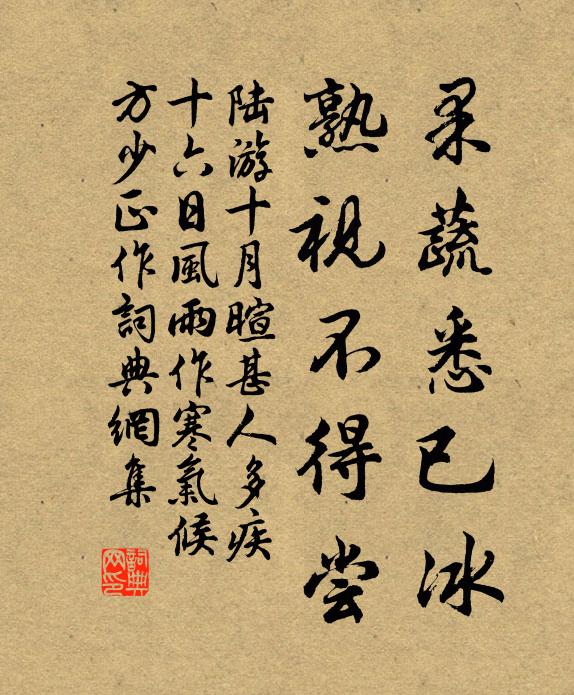 果蔬悉已冰
熟視不得尝
陆游十月暄甚人多疾
十六日風雨作寒氣候
方少正作詞典網集
詞典
网印